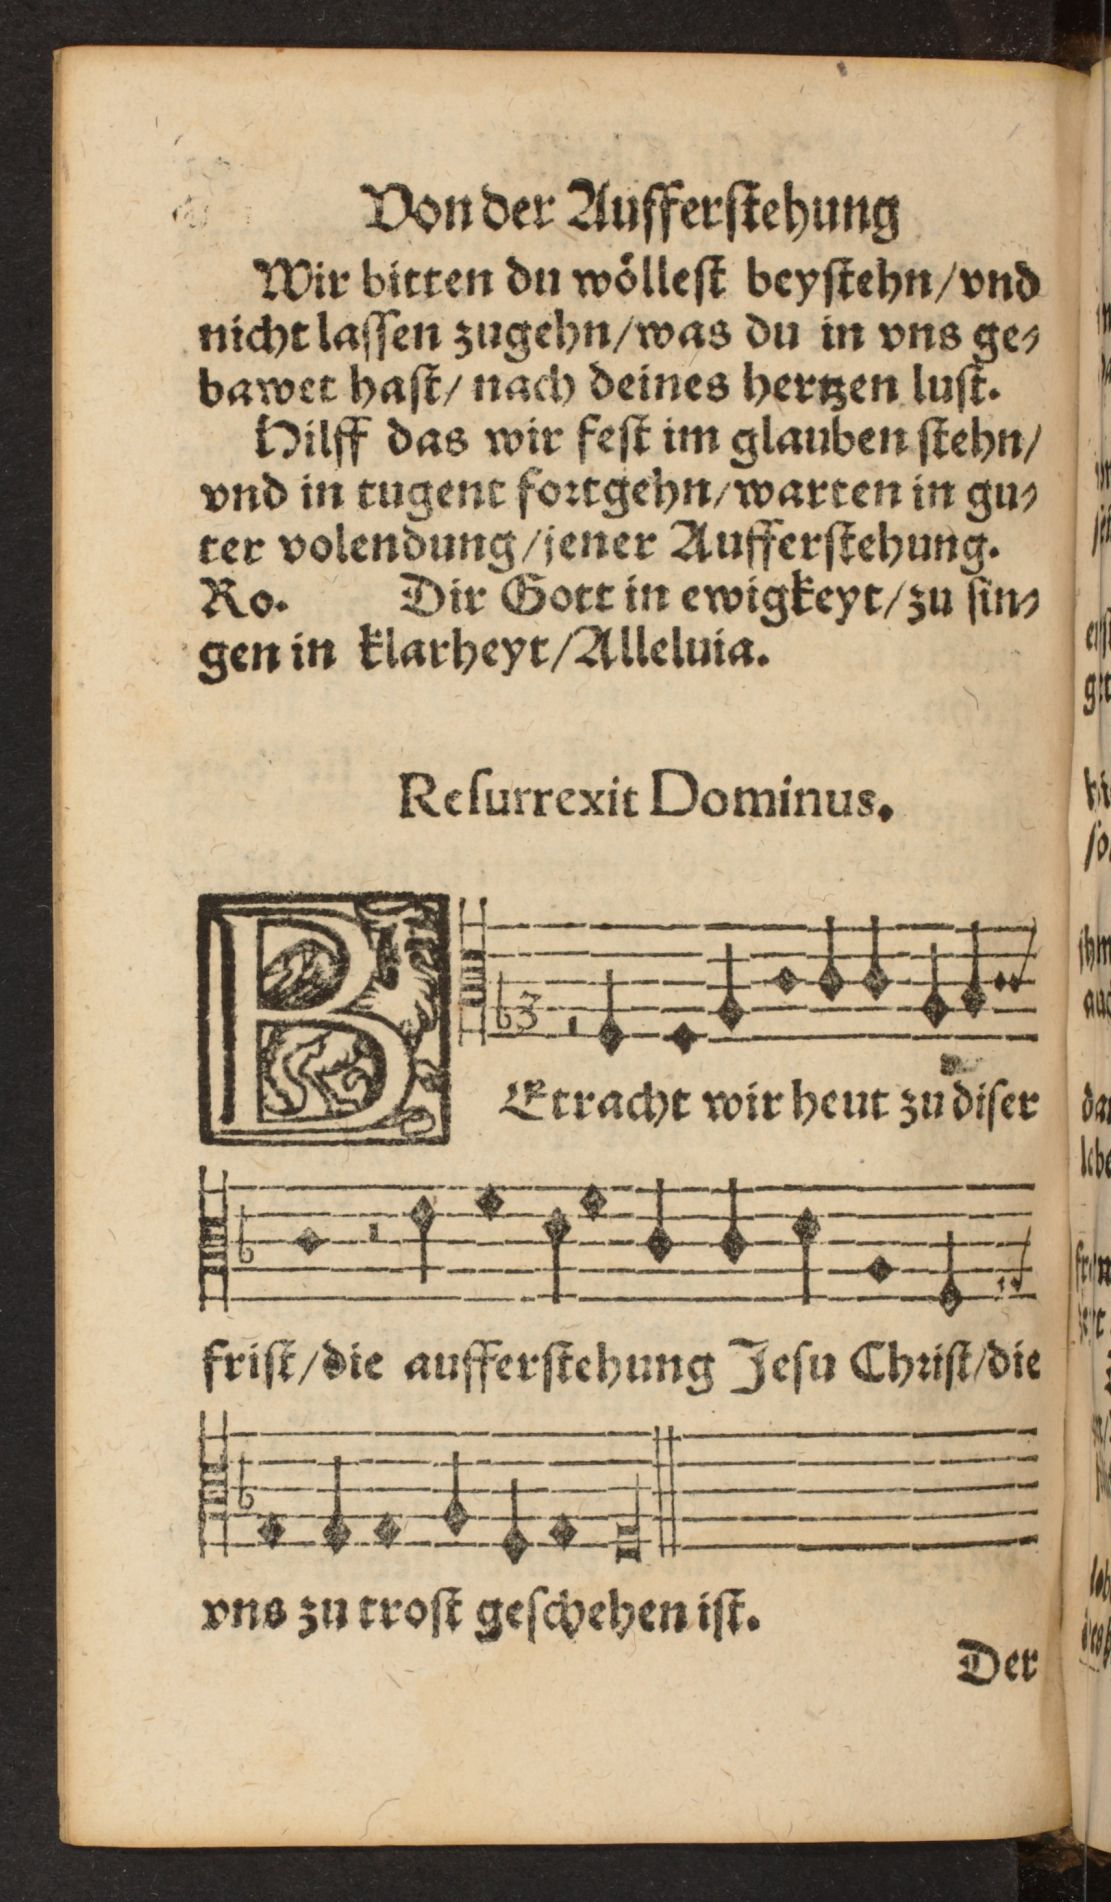 Von der Aufferstehung
Wir bitten du wöllest beystehn/vnd
nicht lassen zugehn/was du in vns ge⸗
bawet hast/ nach deines hertzen lust.
Hilff das wir fest im glauben stehn/
vnd in tugent fortgehn/warten in gu⸗
ter volendung/jener Aufferstehung.
Ro. Dir Gott in ewigkeyt/zu sin⸗
gen in klarheyt/Alleluia.
Resurrexit Dominus.
BEtracht wir heut zu diser
frist/die aufferstehung Jesu Christ/die
vns zu trost geschehen ist.
Der